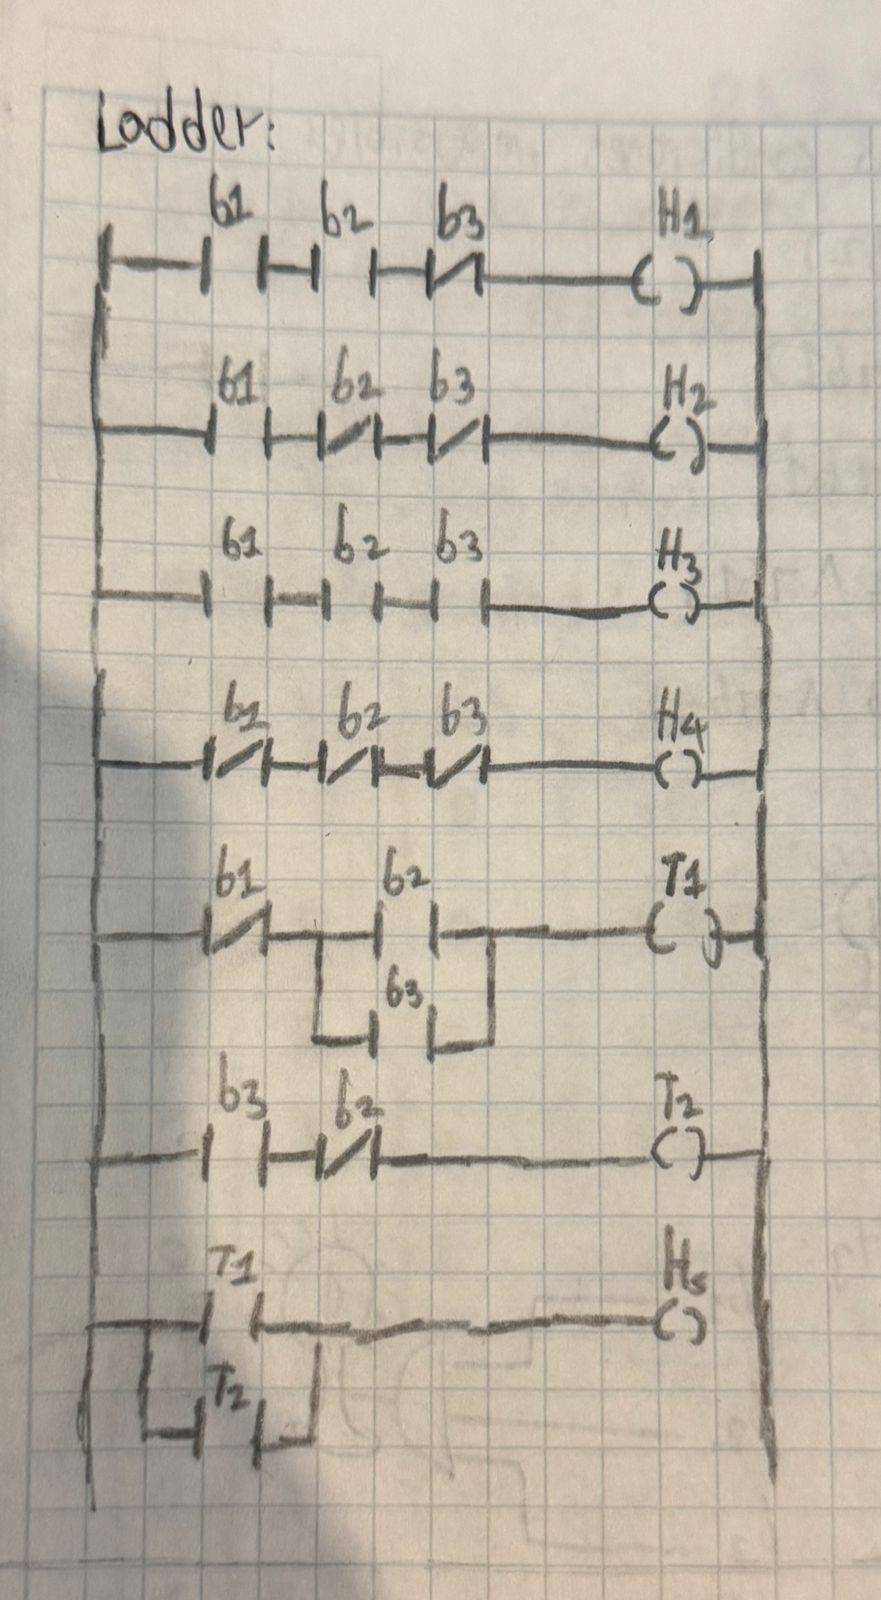 Ladder:
b1 b2 b3 H1
b1 b2 b3 H2
b1 b2 b3 H3
b1 b2 b3 H4
b1 b2 T1
b3
b3 b2 T2
T1 H5
T2